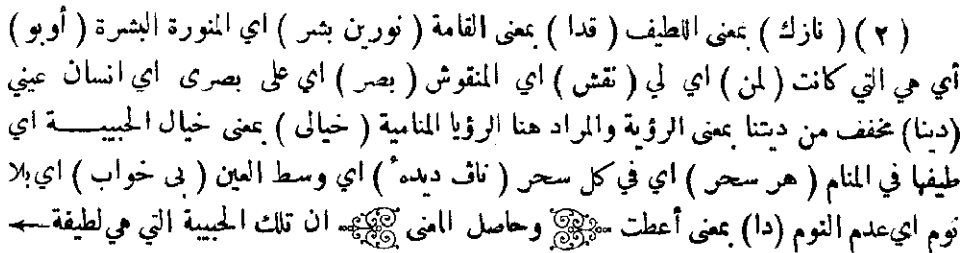 ( ٢ ) ( نازك ) بمعنى اللطيف ( قدا ) بمعنى القامة ( نورين بشر ) اي المنورة البشرة ( أوبو )
أي هي التي كانت ( لمن ) اي لي ( نقش ) اي المنقوش ( بصر ) اي على بصرى اي انسان عيني
(دينا) مخفف من ديتنا بمعنى الرؤية والمراد هنا الرؤيا المنامية ( خيالى ) بمعنى خيال الحبيبة اي
طيفها في المنام ( هر سحر ) اي في كل سحر ( ناڤ ديدهٔ ) اي وسط العين ( بى خواب ) اي بلا
نوم اي عدم النوم (دا) بمعنى أعطت وحاصل المعنى ان تلك الحبيبة التي هي لطيفة ←